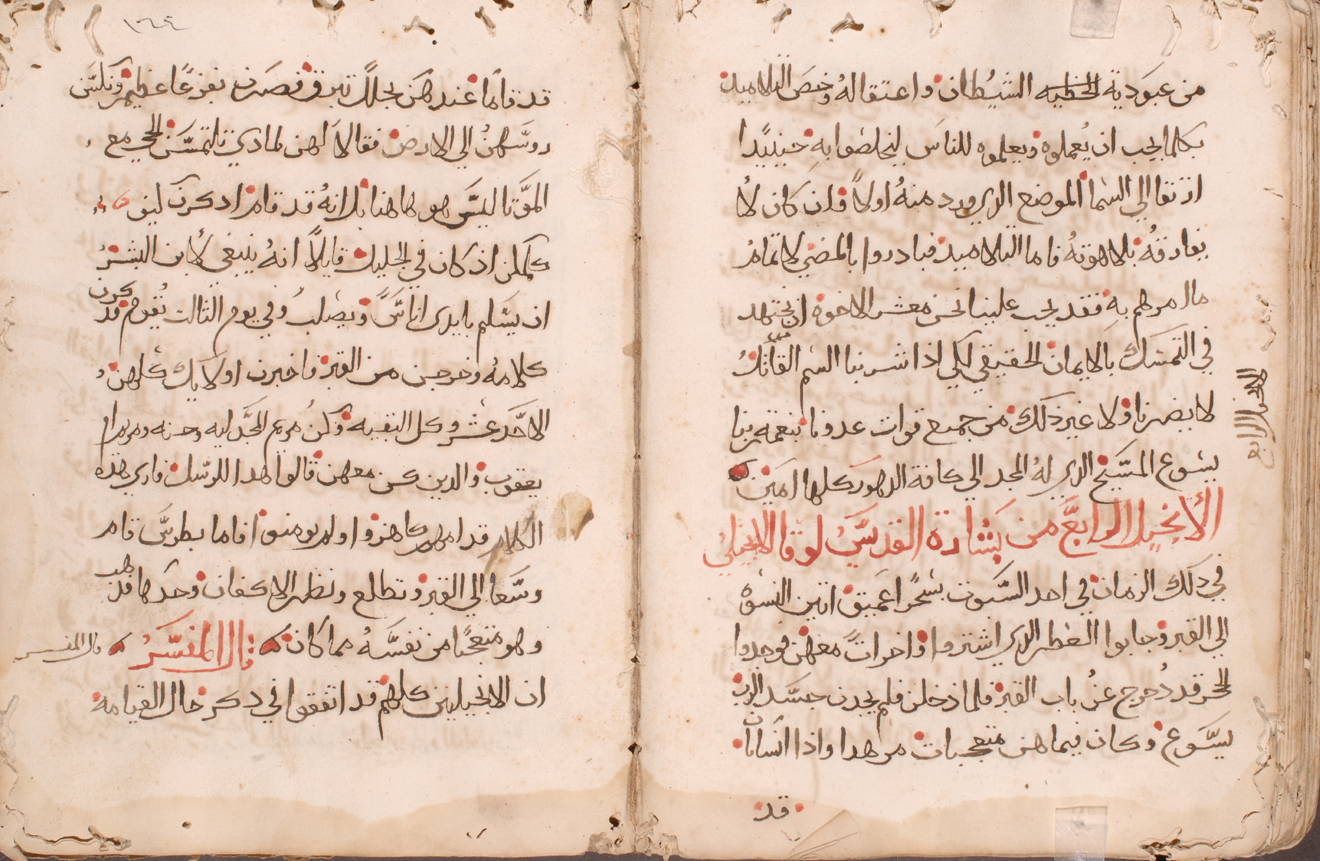 من عبودية الخطيه الشيطان واعتقاله وخص التلاميد
بكلما يجب ان يعملوه ويعلموه للناس ليخلصوا به حينيدا
ارتقا الي السما الموضع الدي ورد منه اولا وان كان لم
يفارقه بلاهوته فاما التلاميد فبادروا بالمضي لاتمام
ما امرهم به فقد يجب علينا نحن معشر الاخوه ان نجتهد
في التمسك بالايمان الحقيقي لكي ادا شربنا السم القاتل
لا يضرنا ولا غير دلك من جميع قوات عدونا بنعمة ربنا
يسوع المسيح الدي له المجد الي كافة الدهور كلها امين
الانجيل الرابع من بشارة القديس لوقا الانجيلي
في دلك الزمان في احد السبوت بسحرا عميق اتين النسوه
الي القبر وجابوا العطر الدي اشتروا واخرات معهن فوجدوا
الحجر قد دحرج عن باب القبر فلما دخلن فلم يجدن جسد الرب
يسوع وكان بينما هن متعجبات من هدا وادا انسانان
قد
الانجيل الرابع
١٦٤
قد قاما عند هن بحلل تبرق فصرن بفزعا عظيم ونكسن
روسهن الي الارض فقالا لهن لمادي تلتمسن الحي مع
الموتا ليس هو هاهنا بل انه قد قام ادكرن كيف
كلمكن اد كان في الجليل قايلا انه ينبغي لابن البشر
ان يسلم بايدي اناس ويصلب وفي يوم التالت يقوم فدكرن
كلامه وخرجن من القبر فاخبرن اولايك كلهن
الاحد عشر وكل البقيه وكن مريم المجدليه وحنه ومريم ام
يعقوب والدين كن معهن قالوا هدا للرسل فاري هده
الكلام قدامهم كاهزوا ولم يومنوا فاما بطرس قام
وسعا الي القبر وتطلع ونظر الاكفان وحدها فدهب
وهو متعجبا من نفسه مما كان قال المفسر
ان الانجيليين كلهم قد اتفقوا في دكر حال القيامه
قال المفسر